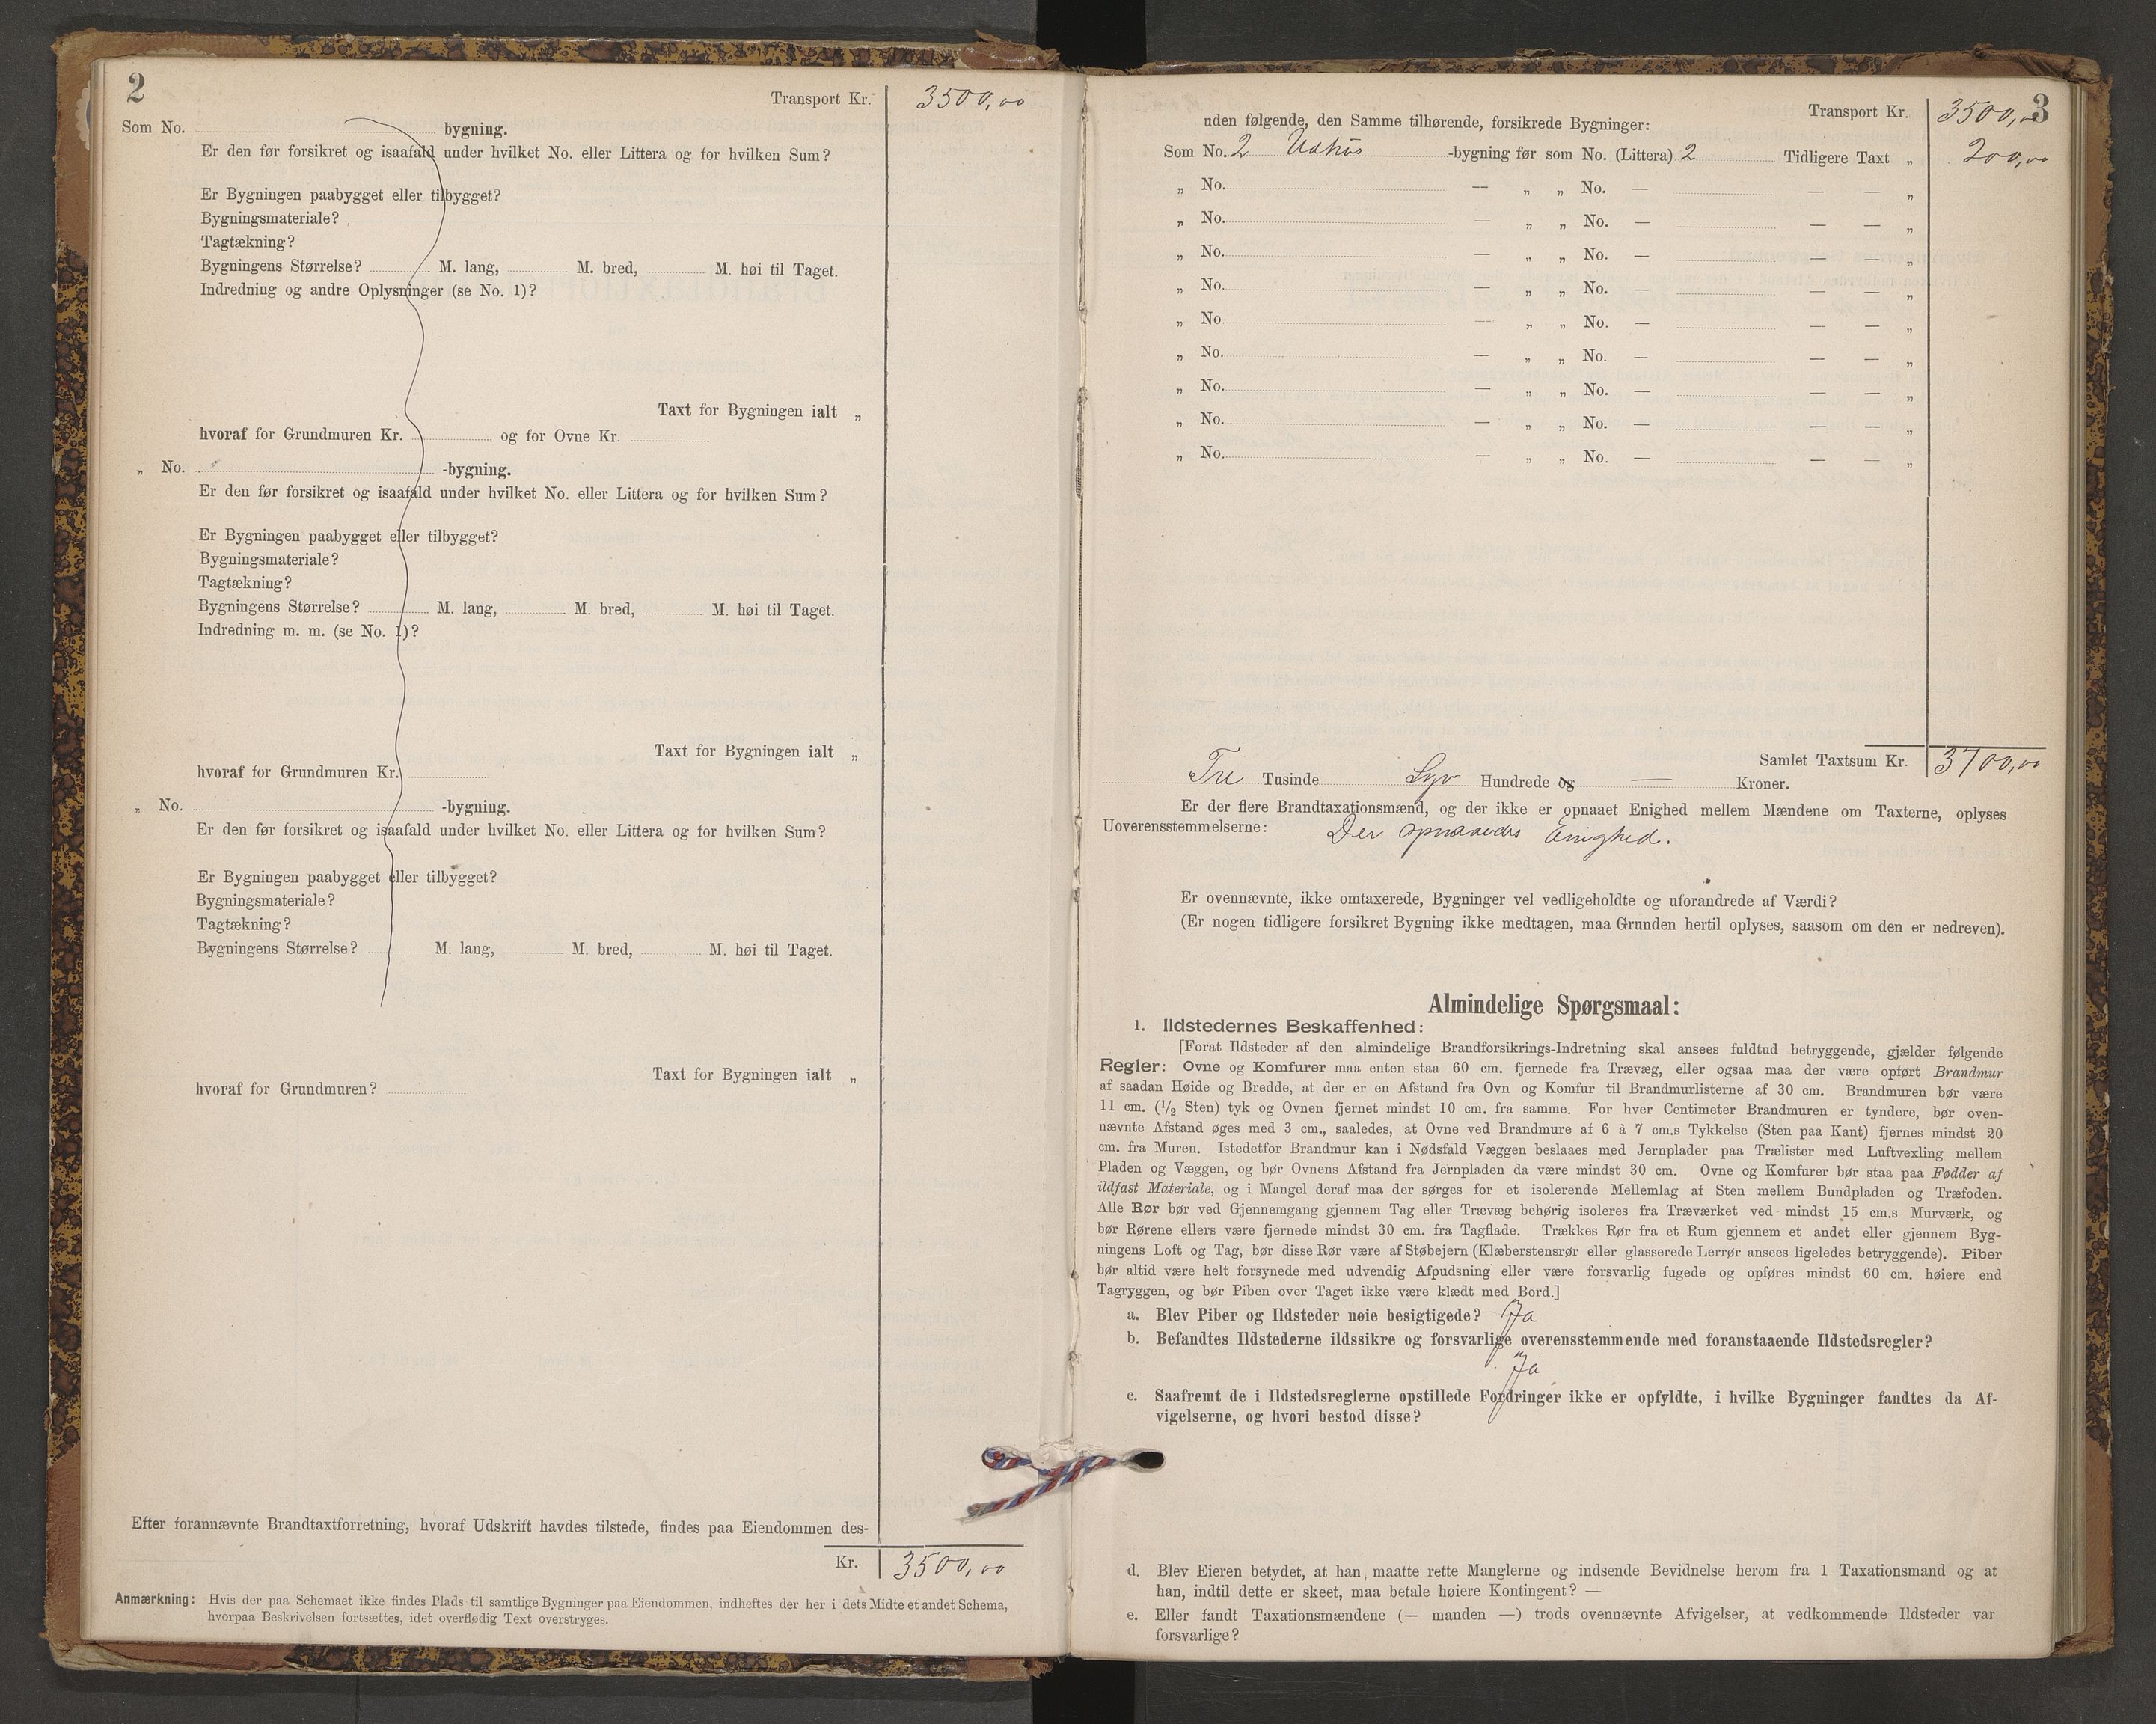 2
Transport Kr. 3500,00
Som No. bygning.
Er den før forsikret og isaafald under hvilket No. eller Littera og for hvilken Sum?
Er Bygningen paabygget eller tilbygget?
Bygningsmateriale?
Tagtækning?
Bygningens Størrelse? M. lang, M. bred, M. høi til Taget.
Indredning og andre Oplysninger (se No. 1)?
Taxt for Bygningen ialt „
hvoraf for Grundmuren Kr. og for Ovne Kr.
„ No. -bygning.
Er den før forsikret og isaafald under hvilket No. eller Littera og for hvilken Sum?
Er Bygningen paabygget eller tilbygget?
Bygningsmateriale?
Tagtækning?
Bygningens Størrelse? M. lang, M. bred, M. høi til Taget.
Indredning m. m. (se No. 1)?
Taxt for Bygningen ialt „
hvoraf for Grundmuren Kr.
„ No. -bygning.
Er den før forsikret og isaafald under hvilket No. eller Littera og for hvilken Sum?
Er Bygningen paabygget eller tilbygget?
Bygningsmateriale?
Tagtækning?
Bygningens Størrelse? M. lang, M. bred, M. høi til Taget.
Taxt for Bygningen ialt „
hvoraf for Grundmuren?
Efter forannævnte Brandtaxtforretning, hvoraf Udskrift havdes tilstede, findes paa Eiendommen des-
Kr. 3500,00
Anmærkning: Hvis der paa Schemaet ikke findes Plads til samtlige Bygninger paa Eiendommen, indheftes der her i dets Midte et andet Schema,
hvorpaa Beskrivelsen fortsættes, idet overflødig Text overstryges.
3
Transport Kr. 3500,00
uden følgende, den Samme tilhørende, forsikrede Bygninger:
Som No. 2 Udhus -bygning før som No. (Littera) 2 Tidligere Taxt „ 200,00
„ No. — „ „ No. — — — „
„ No. — „ „ No. — — — „
„ No. — „ „ No. — — — „
„ No. — „ „ No. — — — „
„ No — „ „ No. — — — „
„ No. — „ „ No. — — — „
„ No. — „ „ No. — — — „
„ No. — „ „ No. — — — „
„ No. — „ „ No. — — — „
Samlet Taxtsum Kr. 3700,00
Tre Tusinde Syv Hundrede og — Kroner.
Er der flere Brandtaxationsmænd, og der ikke er opnaaet Enighed mellem Mændene om Taxterne, oplyses
Uoverensstemmelserne: Der opnaaedes Enighed.
Er ovennævnte, ikke omtaxerede, Bygninger vel vedligeholdte og uforandrede af Værdi?
(Er nogen tidligere forsikret Bygning ikke medtagen, maa Grunden hertil oplyses, saasom om den er nedreven).
Almindelige Spørgsmaal:
1. Ildstedernes Beskaffenhed:
[Forat Ildsteder af den almindelige Brandforsikrings-Indretning skal ansees fuldtud betryggende, gjælder følgende
Regler: Ovne og Komfurer maa enten staa 60 cm. fjernede fra Trævæg, eller ogsaa maa der være opført Brandmur
af saadan Høide og Bredde, at der er en Afstand fra Ovn og Komfur til Brandmurlisterne af 30 cm. Brandmuren bør være
11 cm. (1/2 Sten) tyk og Ovnen fjernet mindst 10 cm. fra samme. For hver Centimeter Brandmuren er tyndere, bør oven-
nævnte Afstand øges med 3 cm., saaledes, at Ovne ved Brandmure af 6 à 7 cm.s Tykkelse (Sten paa Kant) fjernes mindst 20
cm. fra Muren. Istedetfor Brandmur kan i Nødsfald Væggen beslaaes med Jernplader paa Trælister med Luftvexling mellem
Pladen og Væggen, og bør Ovnens Afstand fra Jernpladen da være mindst 30 cm. Ovne og Komfurer bør staa paa Fødder af
ildfast Materiale, og i Mangel deraf maa der sørges for et isolerende Mellemlag af Sten mellem Bundpladen og Træfoden.
Alle Rør bør ved Gjennemgang gjennem Tag eller Trævæg behørig isoleres fra Træværket ved mindst 15 cm.s Murværk, og
bør Rørene ellers være fjernede mindst 30 cm. fra Tagflade. Trækkes Rør fra et Rum gjennem et andet eller gjennem Byg-
ningens Loft og Tag, bør disse Rør være af Støbejern (Klæberstensrør eller glasserede Lerrør ansees ligeledes betryggende). Piber
bør altid være helt forsynede med udvendig Afpudsning eller være forsvarlig fugede og opføres mindst 60 cm. høiere end
Tagryggen, og bør Piben over Taget ikke være klædt med Bord.]
a. Blev Piber og Ildsteder nøie besigtigede? Ja
b. Befandtes Ildstederne ildssikre og forsvarlige overensstemmende med foranstaaende Ildstedsregler?
Ja
c. Saafremt de i Ildstedsreglerne opstillede Fordringer ikke er opfyldte, i hvilke Bygninger fandtes da Af-
vigelserne, og hvori bestod disse?
d. Blev Eieren betydet, at han maatte rette Manglerne og indsende Bevidnelse herom fra 1 Taxationsmand og at
han, indtil dette er skeet, maa betale høiere Kontingent? —
e. Eller fandt Taxationsmændene (— manden —) trods ovennævnte Afvigelser, at vedkommende Ildsteder var
forsvarlige?